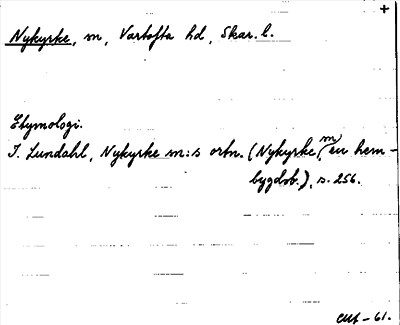 +
Nykyrke, sn, Vartofta hd, Skar. l.
Etymologi.
I. Lundahl, Nykyrke sn:s ortn. (Nykyrke, en hem-
bygdsb.), s. 256.
-61.